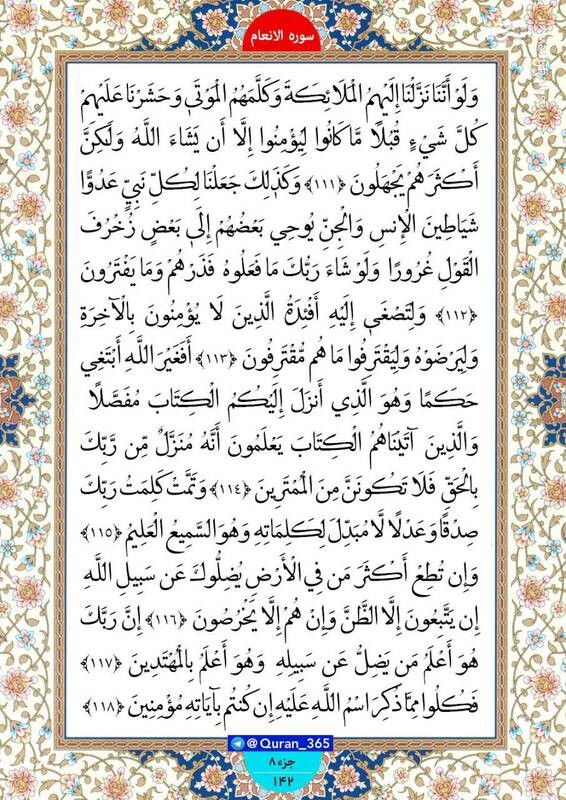 سوره الانعام
وَلَوْ أَنَّنَا نَزَّلْنَا إِلَيْهِمُ الْمَلَائِكَةَ وَكَلَّمَهُمُ الْمَوْتَىٰ وَحَشَرْنَا عَلَيْهِمْ
كُلَّ شَيْءٍ قُبُلًا مَّا كَانُوا لِيُؤْمِنُوا إِلَّا أَن يَشَاءَ اللَّهُ وَلَٰكِنَّ
أَكْثَرَهُمْ يَجْهَلُونَ ﴿۱۱۱﴾ وَكَذَٰلِكَ جَعَلْنَا لِكُلِّ نَبِيٍّ عَدُوًّا
شَيَاطِينَ الْإِنسِ وَالْجِنِّ يُوحِي بَعْضُهُمْ إِلَىٰ بَعْضٍ زُخْرُفَ
الْقَوْلِ غُرُورًا وَلَوْ شَاءَ رَبُّكَ مَا فَعَلُوهُ فَذَرْهُمْ وَمَا يَفْتَرُونَ
﴿۱۱۲﴾ وَلِتَصْغَىٰ إِلَيْهِ أَفْئِدَةُ الَّذِينَ لَا يُؤْمِنُونَ بِالْآخِرَةِ
وَلِيَرْضَوْهُ وَلِيَقْتَرِفُوا مَا هُم مُّقْتَرِفُونَ ﴿۱۱۳﴾ أَفَغَيْرَ اللَّهِ أَبْتَغِي
حَكَمًا وَهُوَ الَّذِي أَنزَلَ إِلَيْكُمُ الْكِتَابَ مُفَصَّلًا
وَالَّذِينَ آتَيْنَاهُمُ الْكِتَابَ يَعْلَمُونَ أَنَّهُ مُنَزَّلٌ مِّن رَّبِّكَ
بِالْحَقِّ فَلَا تَكُونَنَّ مِنَ الْمُمْتَرِينَ ﴿۱۱۴﴾ وَتَمَّتْ كَلِمَتُ رَبِّكَ
صِدْقًا وَعَدْلًا لَّا مُبَدِّلَ لِكَلِمَاتِهِ وَهُوَ السَّمِيعُ الْعَلِيمُ ﴿۱۱۵﴾
وَإِن تُطِعْ أَكْثَرَ مَن فِي الْأَرْضِ يُضِلُّوكَ عَن سَبِيلِ اللَّهِ
إِن يَتَّبِعُونَ إِلَّا الظَّنَّ وَإِنْ هُمْ إِلَّا يَخْرُصُونَ ﴿۱۱۶﴾ إِنَّ رَبَّكَ
هُوَ أَعْلَمُ مَن يَضِلُّ عَن سَبِيلِهِ وَهُوَ أَعْلَمُ بِالْمُهْتَدِينَ ﴿۱۱۷﴾
فَكُلُوا مِمَّا ذُكِرَ اسْمُ اللَّهِ عَلَيْهِ إِن كُنتُم بِآيَاتِهِ مُؤْمِنِينَ ﴿۱۱۸﴾
@Quran_365
جزء ۸
۱۴۲